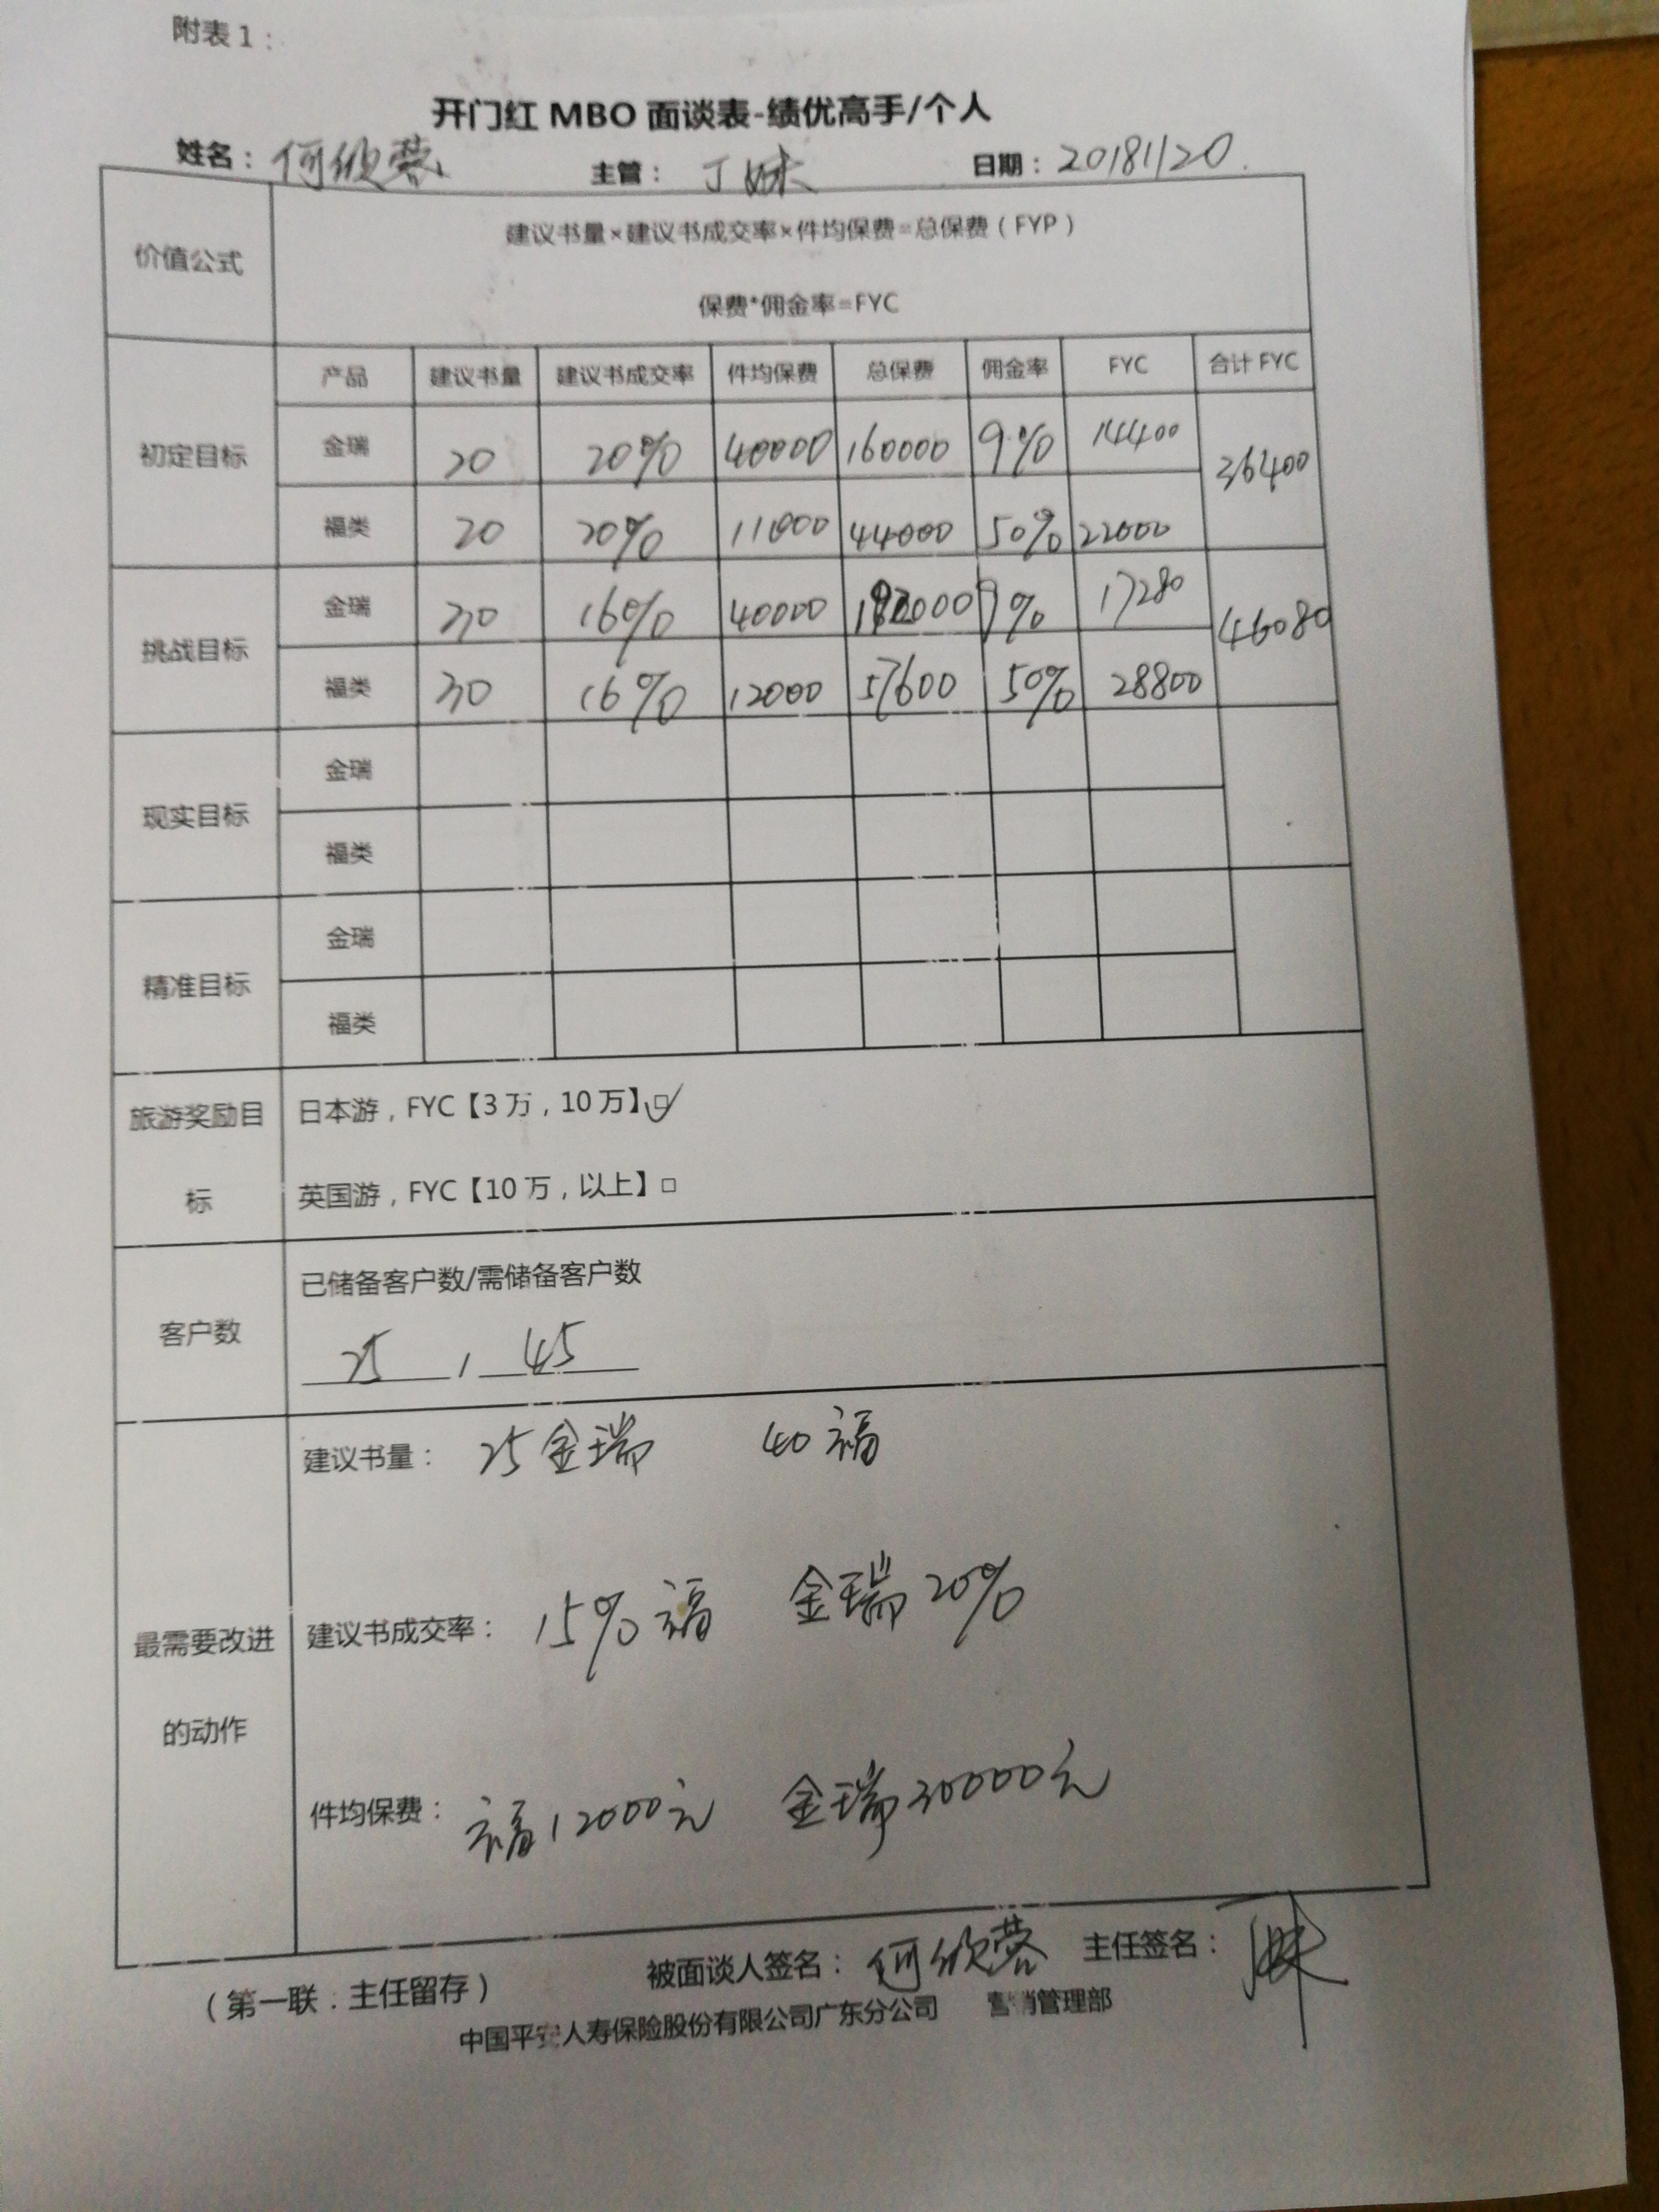 附表1：
开门红 MBO 面谈表-绩优高手/个人
姓名：何欣蓉 主管：丁妹 日期：20181120.
价值公式
建议书量×建议书成交率×件均保费=总保费（FYP）
保费*佣金率=FYC
产品 建议书量 建议书成交率 件均保费 总保费 佣金率 FYC 合计 FYC
初定目标
金瑞 20 20% 40000 160000 9% 14400
36400
福类 20 20% 11000 44000 50% 22000
挑战目标
金瑞 30 16% 40000 192000 9% 17280
46080
福类 30 16% 12000 57600 50% 28800
现实目标
金瑞
福类
精准目标
金瑞
福类
旅游奖励目
标
日本游，FYC【3万，10万】☑
英国游，FYC【10万，以上】□
客户数
已储备客户数/需储备客户数
25 / 45
最需要改进
的动作
建议书量： 25金瑞 40福
建议书成交率： 15%福 金瑞20%
件均保费： 福12000元 金瑞30000元
（第一联：主任留存） 被面谈人签名：何欣蓉 主任签名：丁妹
中国平安人寿保险股份有限公司广东分公司 营销管理部